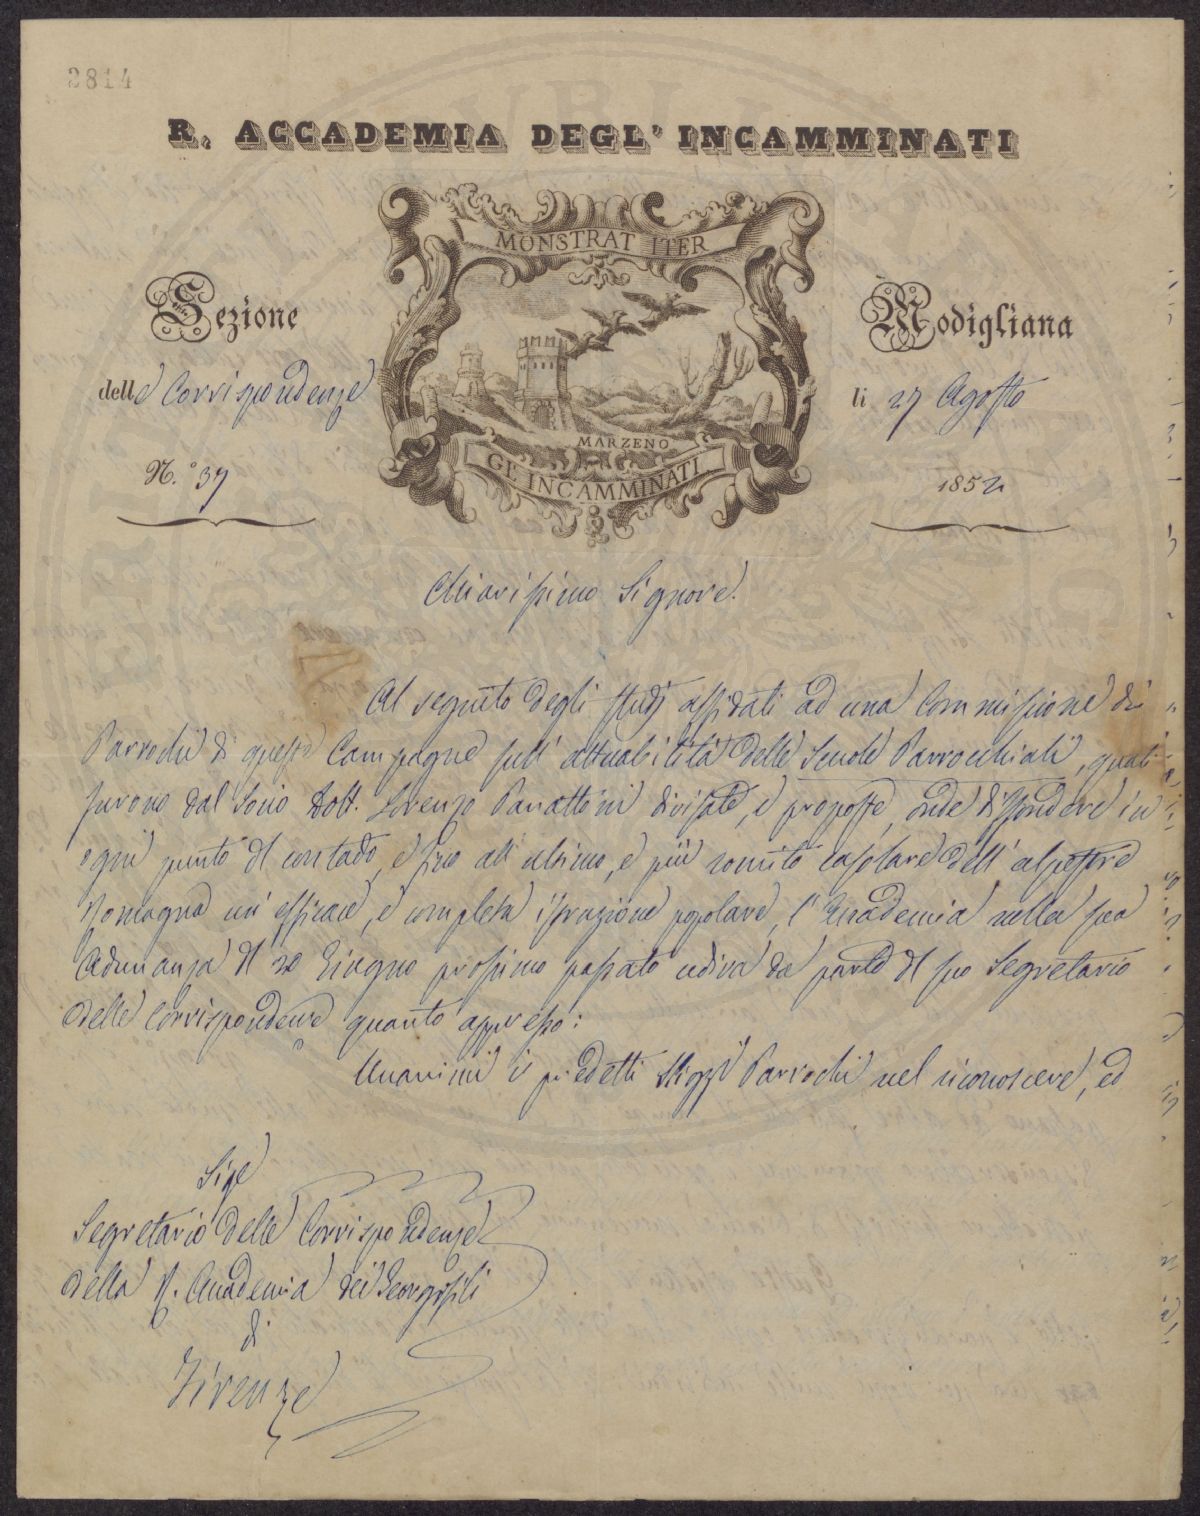 2814
R. ACCADEMIA DEGL' INCAMMINATI
MONSTRAT ITER
Sezione
Modigliana
delle Corrispondenze
li 27 Agosto
MARZENO
GL'INCAMMINATI
N.° 37
1852
Chiarissimo Signore!
Al seguito degli studj affidati ad una Commissione di
Parrochi di queste Campagne sull' attuabilità delle Scuole Parrocchiali, quali
furono dal Socio Dott. Lorenzo Panattoni divisate, e proposte, onde diffondere in
ogni punto del contado, e fino all' ultimo, e più romito casolare dell' alpestre
Romagna un' efficace, e completa istruzione popolare, l' Accademia nella sua
Adunanza del 20 Giugno prossimo passato udiva da parte del suo Segretario
delle Corrispondenze quanto appresso:
Unanimi i predetti Parrochi nel riconoscere, ed
Sige
Segretario delle Corrispondenze
della R. Accademia dei Georgofili
di
Firenze